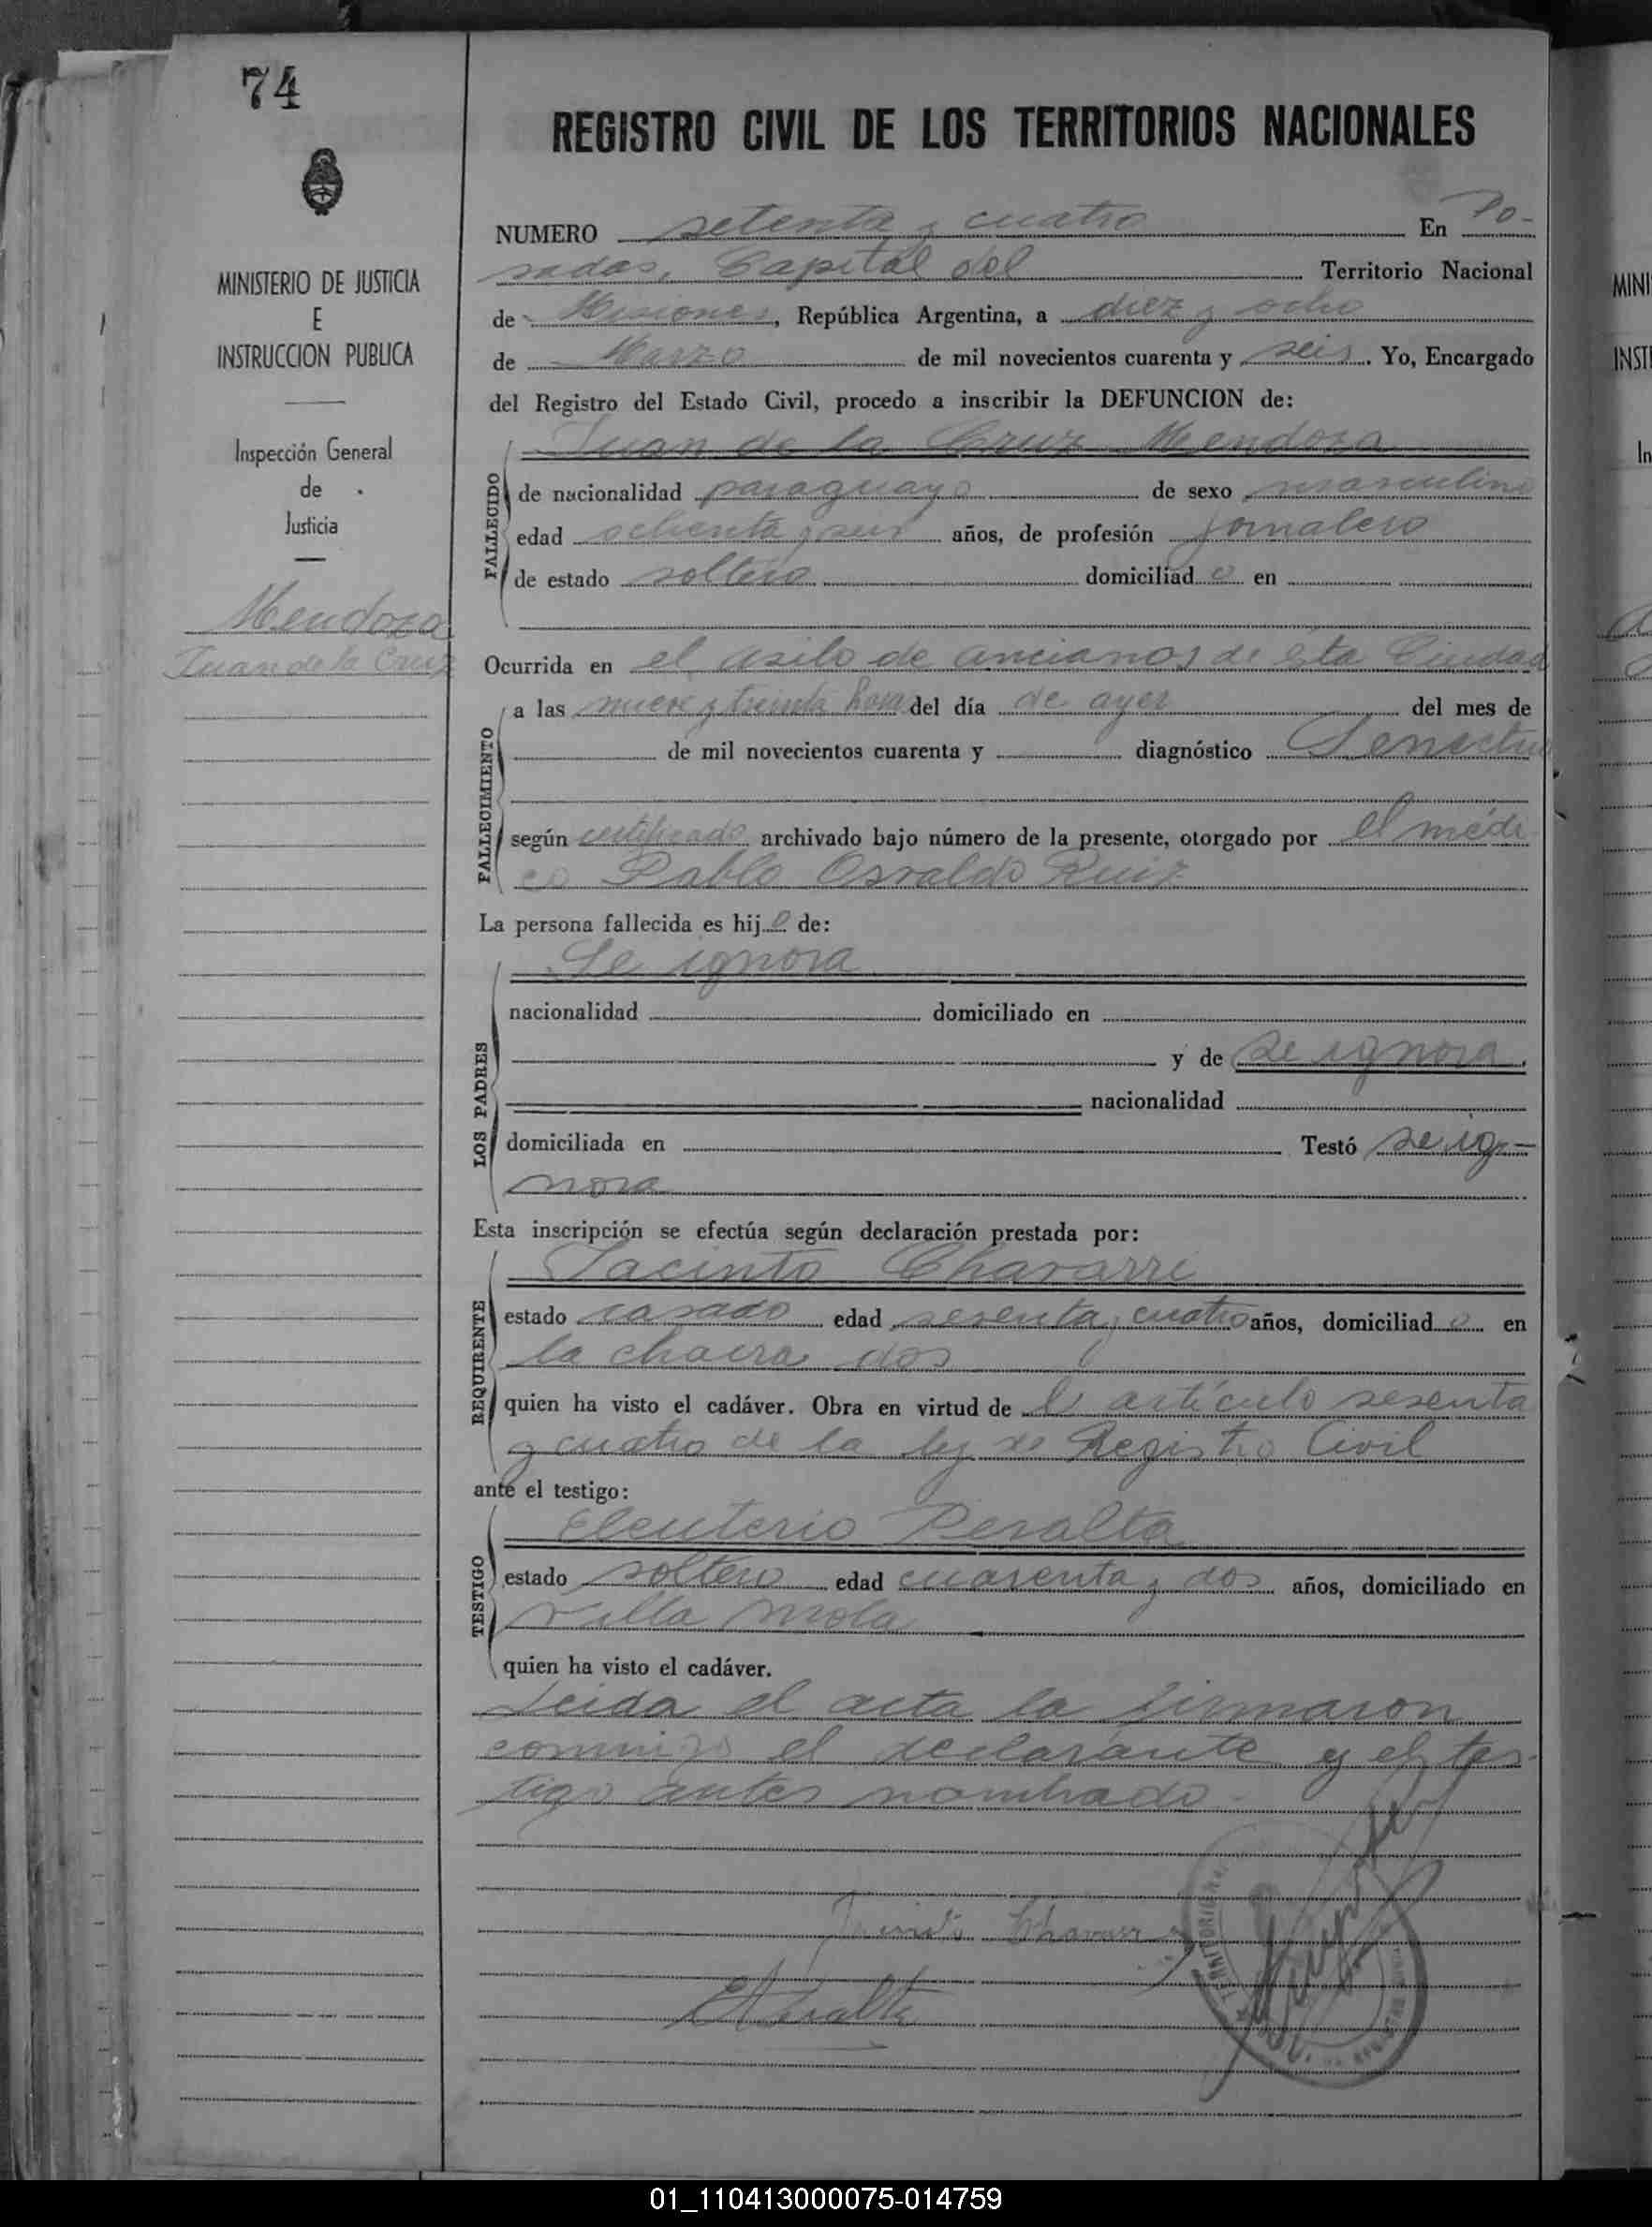 74
REGISTRO CIVIL DE LOS TERRITORIOS NACIONALES
MINISTERIO DE JUSTICIA
E
INSTRUCCION PUBLICA
Inspección General
de
Justicia
Mendoza
Juan de la Cruz
NUMERO setenta y cuatro En Po-
sadas, Capital del Territorio Nacional
de Misiones, República Argentina, a diez y ocho
de Marzo de mil novecientos cuarenta y seis. Yo, Encargado
del Registro del Estado Civil, procedo a inscribir la DEFUNCION de:
Juan de la Cruz Mendoza
FALLECIDO
de nacionalidad paraguayo de sexo masculino
edad ochenta y seis años, de profesión jornalero
de estado soltero domiciliado en
Ocurrida en el asilo de ancianos de ésta Ciudad
FALLECIMIENTO
a las nueve y treinta horas del día de ayer del mes de
de mil novecientos cuarenta y diagnóstico Senectud
según certificado archivado bajo número de la presente, otorgado por el médi
co Pablo Osvaldo Ruiz
La persona fallecida es hijo de:
LOS PADRES
Se ignora
nacionalidad domiciliado en
y de se ignora.
nacionalidad
domiciliada en Testó se ig-
nora
Esta inscripción se efectúa según declaración prestada por:
REQUIRENTE
Jacinto Chavarri
estado casado edad sesenta y cuatro años, domiciliado en
la chacra dos
quien ha visto el cadáver. Obra en virtud del artículo sesenta
y cuatro de la ley de Registro Civil
ante el testigo:
TESTIGO
Eleuterio Peralta
estado soltero edad cuarenta y dos años, domiciliado en
Villa Mola
quien ha visto el cadáver.
Leida el acta la firmaron
conmigo el declarante y el tes-
tigo antes nombrado.
Jacinto Chavarri
E Peralta
MINI
E
INSTI
In
01_110413000075-014759